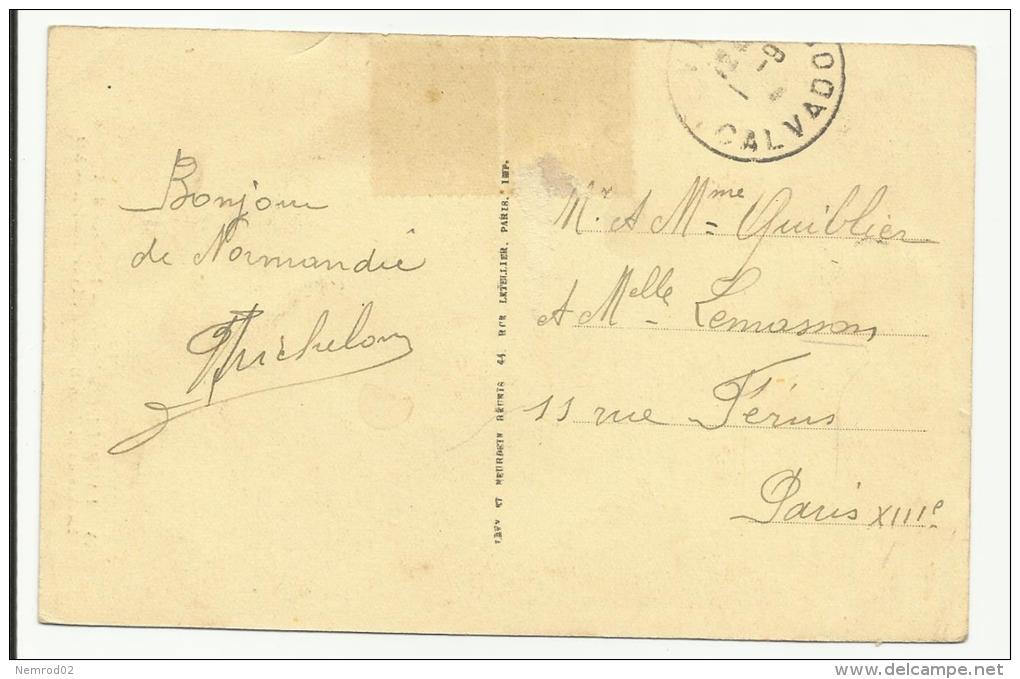 Bonjour
de Normandie
Michelon
LEVY ET NEURDEIN RÉUNIS 44, RUE LETELLIER, PARIS. IMP.
CALVADOS
Mr. A Mme Quiblier
A Melle Lemasson
11 rue Férus
Paris XIIIe
Nemrod02
www.delcampe.net